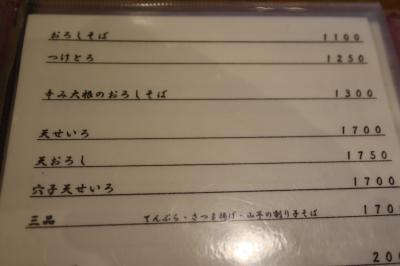 おろしそば 1100
つけとろ 1250
辛み大根のおろしそば 1300
天せいろ 1700
天おろし 1750
穴子天せいろ 1700
三品 てんぷら・さつま揚げ・山芋の割り子そば 170
200